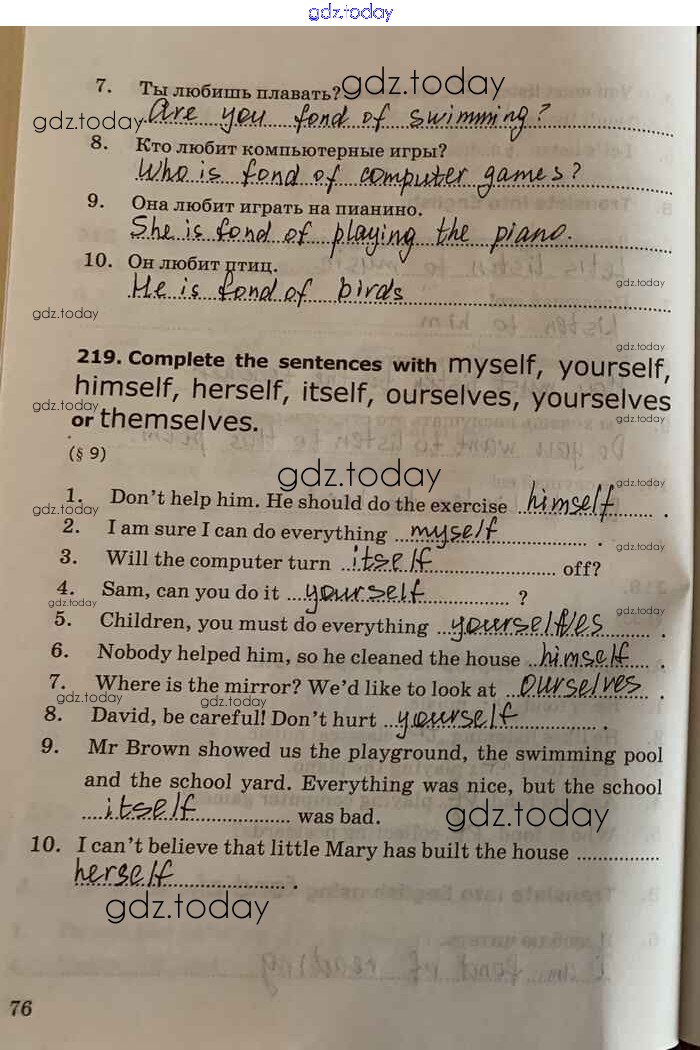 gdz.today
7. Ты любишь плавать? gdz.today
gdz.today Are you fond of swimming?
8. Кто любит компьютерные игры?
Who is fond of computer games?
9. Она любит играть на пианино.
She is fond of playing the piano.
10. Он любит птиц.
He is fond of birds
gdz.today
gdz.today
gdz.today
219. Complete the sentences with myself, yourself,
himself, herself, itself, ourselves, yourselves
gdz.today or themselves.
gdz.today
(§ 9)
gdz.today
gdz.today
1. Don't help him. He should do the exercise himself.
gdz.today
2. I am sure I can do everything myself.
gdz.today
3. Will the computer turn itself off?
4. Sam, can you do it yourself?
gdz.today
gdz.today
5. Children, you must do everything yourselves.
6. Nobody helped him, so he cleaned the house himself.
7. Where is the mirror? We'd like to look at ourselves.
gdz.today gdz.today gdz.today
8. David, be careful! Don't hurt yourself.
9. Mr Brown showed us the playground, the swimming pool
and the school yard. Everything was nice, but the school
itself was bad. gdz.today
10. I can't believe that little Mary has built the house
herself.
gdz.today
76